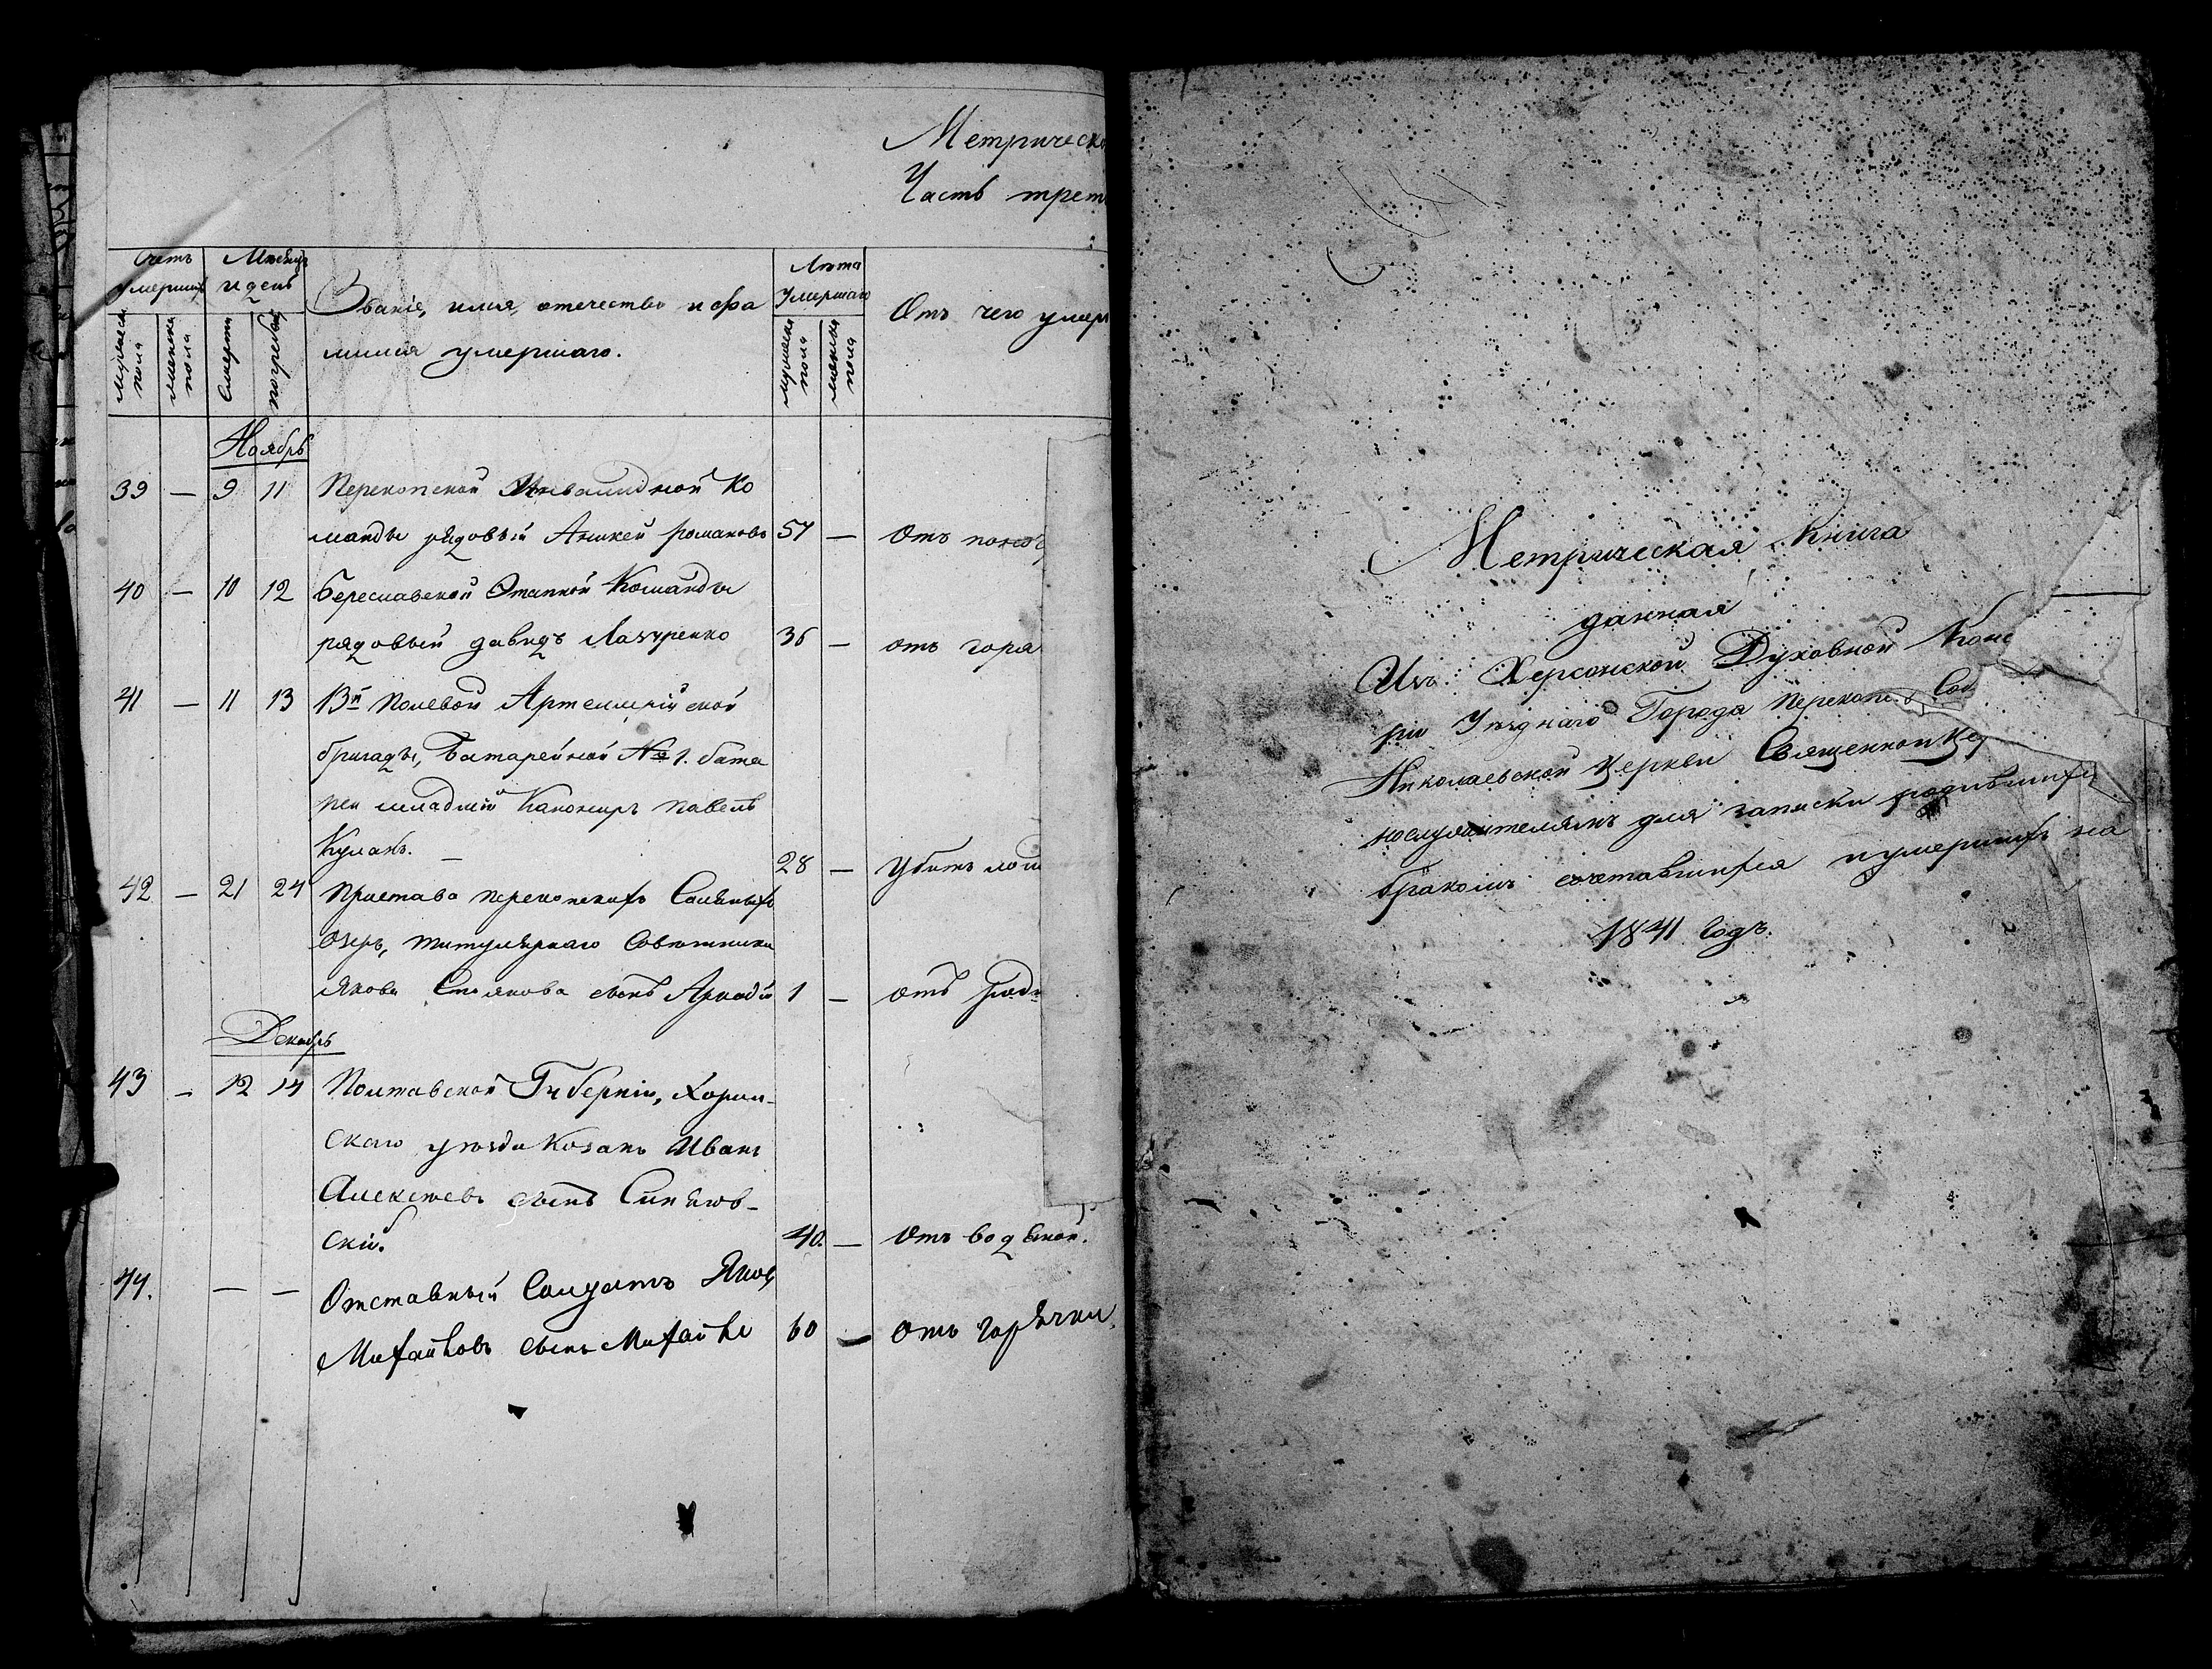 Метрическо
Часть трет
Счетъ умершихъ
Мѣсяцъ и день
Званіе, имя, отечество и фа
милія умершаго.
Лѣта Умершаго
Отъ чего умер
мужеска пола
женска пола
Смерти
погребен
мужеска пола
женска пола
Ноябрь
39 — 9 11 Перекопской Инвалидной Ко
манды рядовый Аникей романовъ 57 — Отъ
40 — 10 12 Бериславской Этапной Команды
рядовый давидъ Лазуренко 36 — отъ горя
41 — 11 13 13й Полевой Артиллерійской
бригады, Батарейной № 1. бата
реи младшій Канониръ павелъ
Кулакъ. — 28 — Убитъ лош
42 — 21 24 Пристава перекопскихъ Соляныхъ
Озеръ, титулярнаго Совѣтника
Якова Стоякова сынъ Аркадій 1 — отъ родм
Декабрь
43 — 12 14 Полтавской Губерніи, Хорол-
скаго уѣзда Козакъ Иванъ
Алексѣевъ сынъ Синявов-
скій. 40. — Отъ водяной.
44. — — Отставный Солдатъ Яков
Михайловъ сынъ Михайле 60 — отъ Горячки.
Метрическая Книга
данная
Изъ Херсонской Духовной Конс
ріи Уѣзднаго Города Перекопа Со
Николаевской Церкви Священноце
нослужителямъ для записки родившихс
бракомъ сочетавшихся иумершихъ на
1841 Годъ.